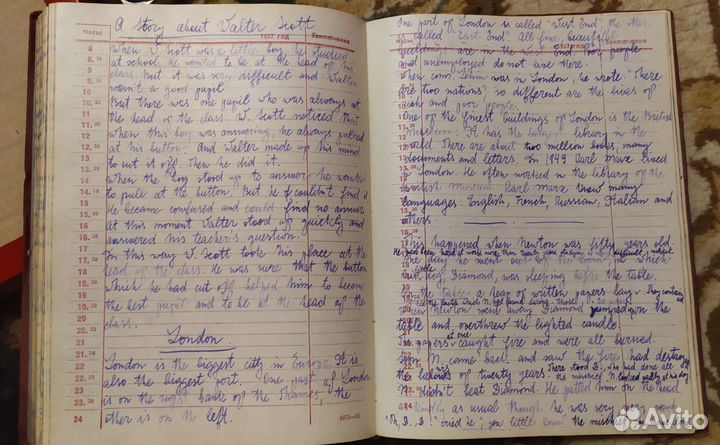 A Story about Walter Scott.
Часы
1977 год
Заключения
When W. Scott was a little boy, he studied
at school. He wanted to be at the head of his
class. But it was very difficult and Walter
wasn't a good pupil.
But there was one pupil who was always at
the head of the class. W. Scott noticed that
when this boy was answering, he always pulled
at his button. And Walter made up his mind
to cut it off. Then he did it.
When the boy stood up to answer, he wanted
to pull at the button. But he couldn't find it
He became confused and could find no answer
at this moment Walter stood up quickly and
answered his teacher's question.
In this way W. Scott took his place at the
head of the class. He was sure that the button
which he had cut off helped him to become
the best pupil and to be at the head of the
class.
London.
London is the biggest city in Europe. It is
also the biggest port. One part of London
is on the right bank of the Thames, the
other is on the left.
One part of London is called "West End", the other
is called "East End". All fine, beautiful
buildings are in the West End. Poor people
and unemployed do not live there.
When com. Lenin was in London, he wrote "There
are two nations" so different are the lives of
rich and poor people.
One of the finest buildings of London is the British
Museum. It has the largest library in the
world. There are about two million books, many
documents and letters. In 1849 Karl Marx lived
in London. He often worked in the library of the
British Museum. Karl Marx knew many
languages: English, French, Russian, Italian and
others.
This happened when Newton was fifty years old.
One day he went out of the room in which
his dog, Diamond, was sleeping before the table.
On the table a heap of written papers lay
When Newton went away Diamond jumped on the
table and overthrew the lighted candle.
The papers at once caught fire and were all burned.
Then N. came back and saw the fire had destroyed
the labours of twenty years. There stood D., who had done all
the mischief.
N. didn't beat Diamond. He patted him on the head
as usual though he was very
"Oh, D., D." cried he, "you little know the mischief
24
Avito